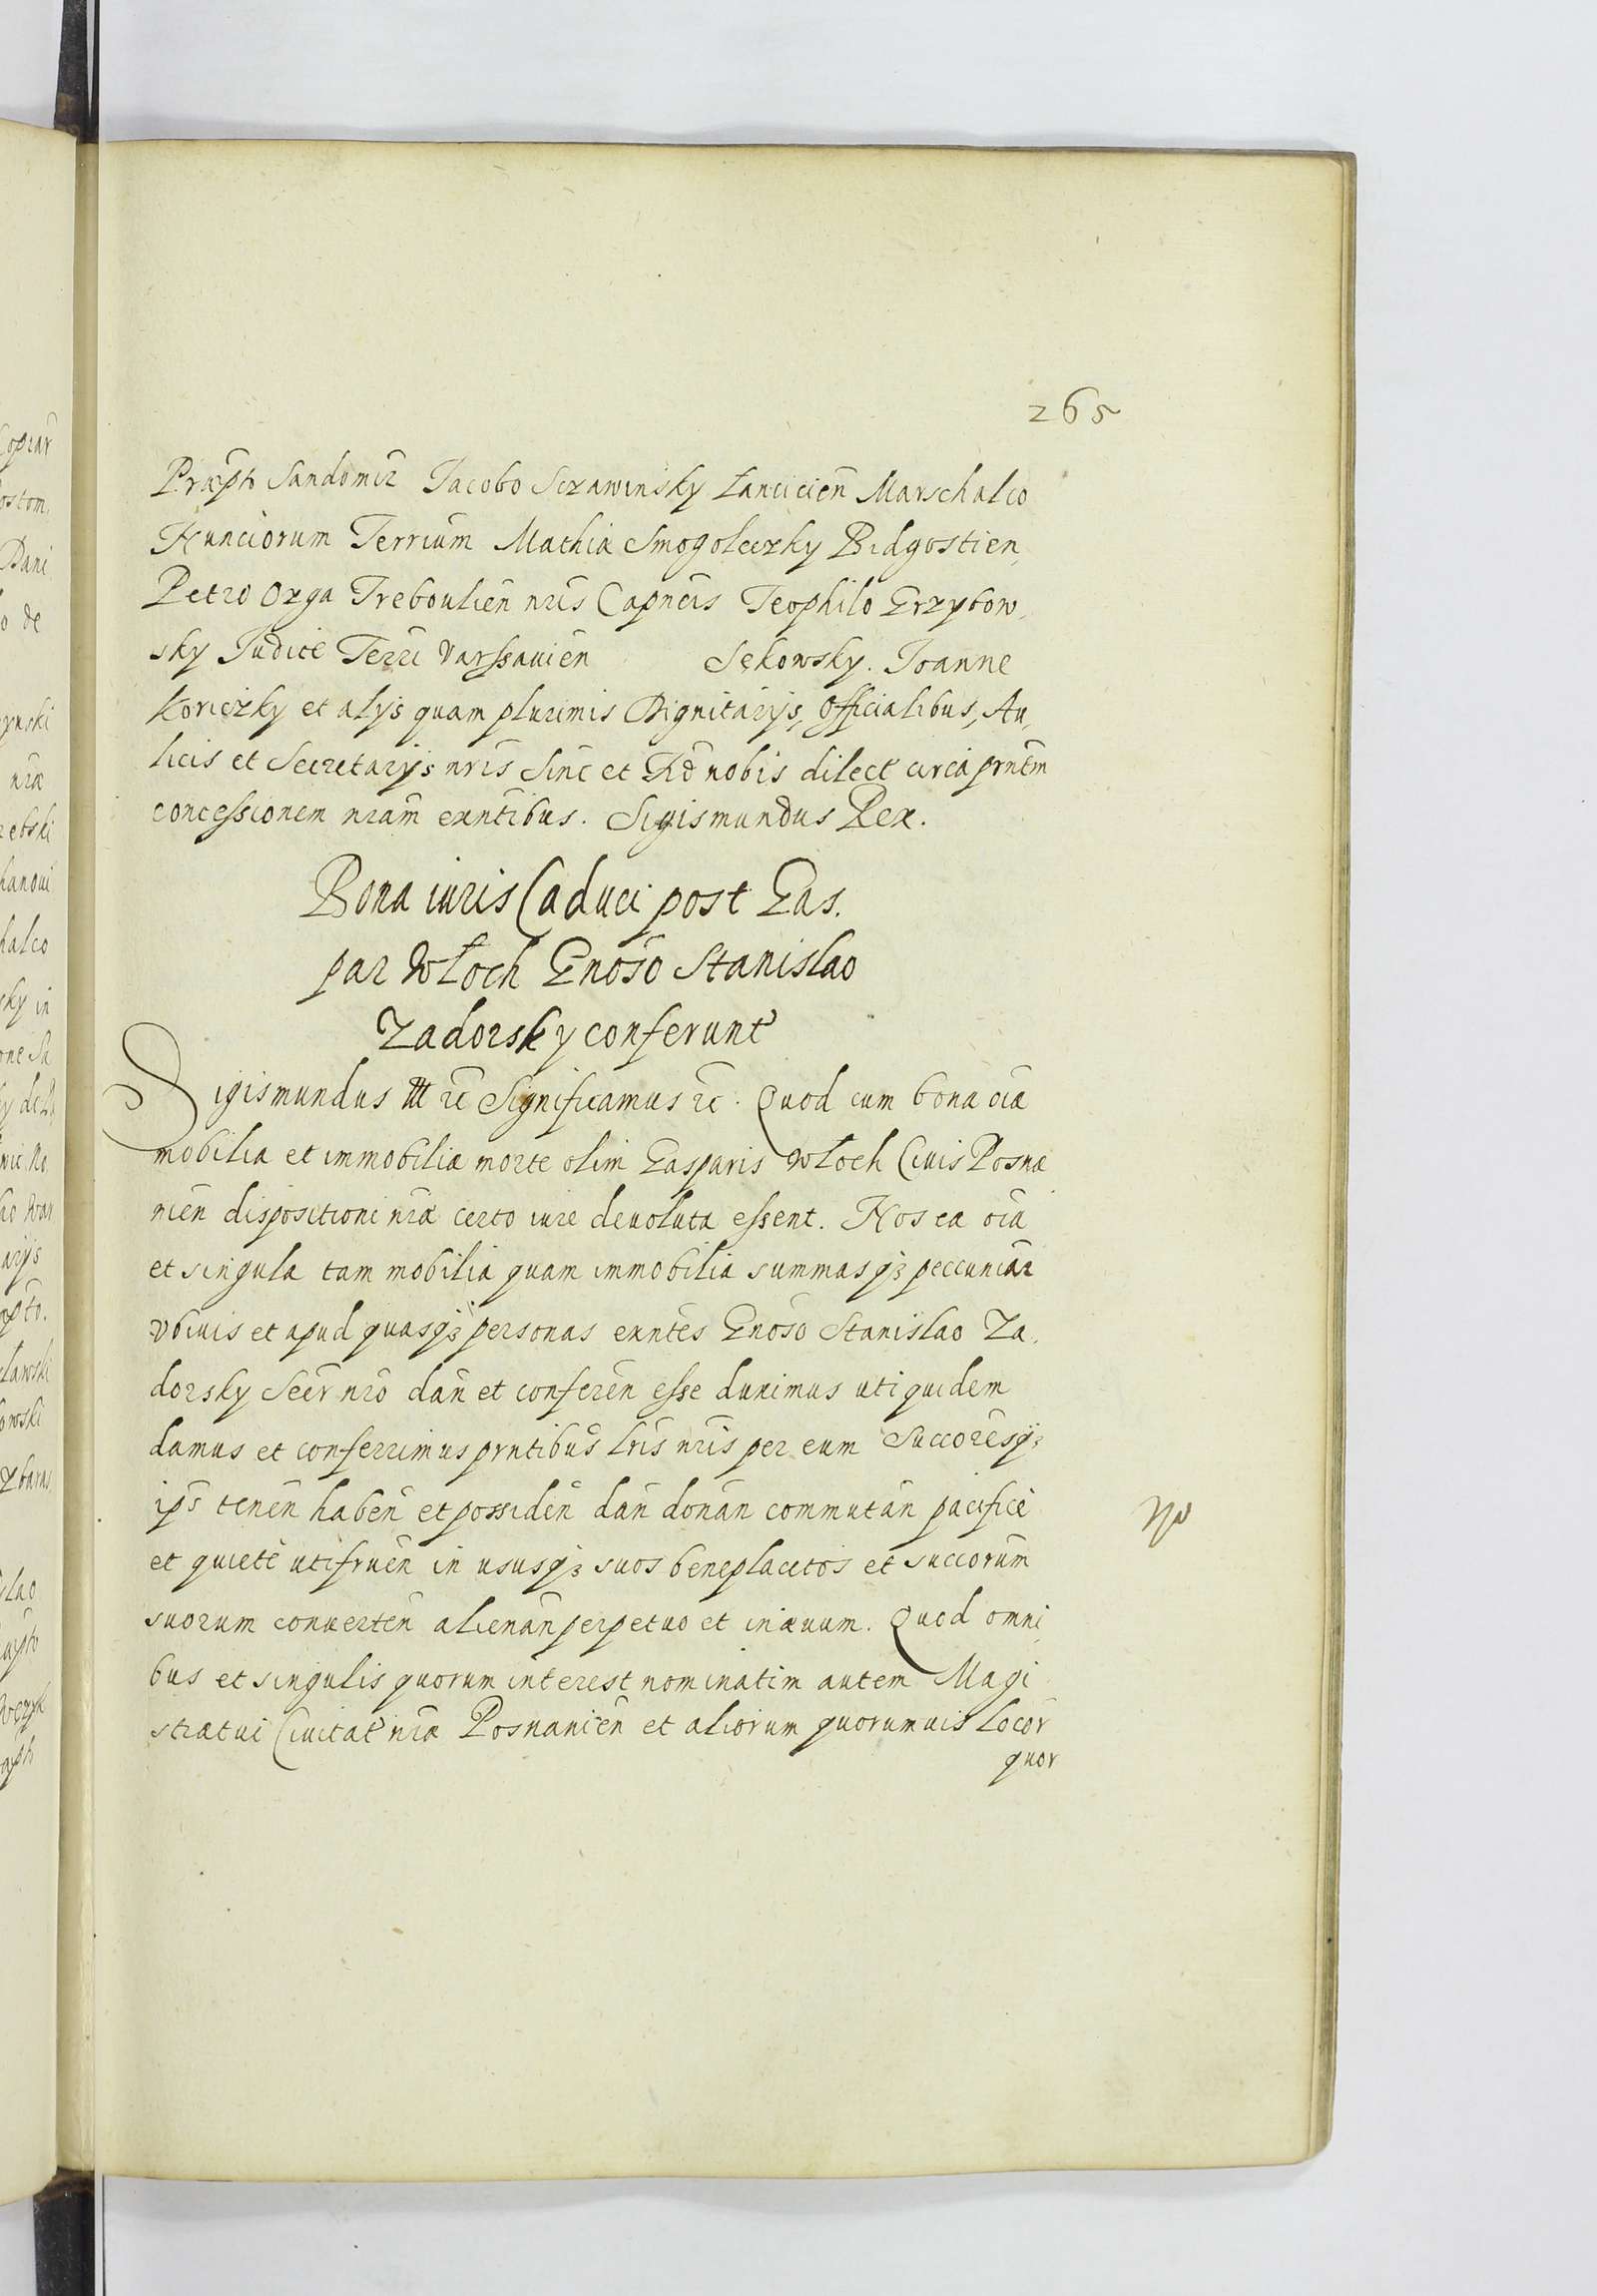 265
Præpto Sandomir Jacobo Sczawinsky Łancicien̄ Marschalco
Nunciorum Terrium Mathia Smogoleczky Bidgostien,
Petro Ozga Treboulien̄ nr̄is Capneis Teophilo Grzybow,
sky Judice Terri Varssauien̄ Sękowsky. Joanne
Koriczky et alÿs quam plurimis Dignitarÿs, Officialibus, Au,
licis et Secretarÿs nr̄is Sinc̄ et Fid̄ nobis dilect̄ circa prn̄tem
concessionem nr̄am exn̄tibus. Sigismundus Rex.
Bona iuris Caduci post Gas.
par Włoch Gnōso Stanislao
Zadorsky conferunt
Sigismundus III rc̄ Significamus rc̄. Quod cum bona oīa
mobilia et immobilia morte olim Gasparis Włoch Civis Posna
nien̄ dispositioni nr̄æ certo iure deuoluta essent. Nos ea oīa
et singula tam mobilia quam immobilia summasqꝫ peccuniar̄
vbiuis et apud quasqꝫ personas exn̄tes Gnōso Stanislao Za.
dorsky Secr̄ nr̄o dan̄ et conferen̄ esse duximus uti quidem
damus et conferrimus prn̄tibus lr̄is nr̄is per eum Succorēsqꝫ
ip̄s tenen̄ haben̄ et possiden̄ dan̄ donan̄ commutan̄ pacifice
et quietè utifruen̄ in ususqꝫ suos beneplacitos et succorum̄
suorum conuerten̄ alienan̄ perpetuo et in æuum. Quod omni,
bus et singulis quorum interest nominatim autem Magi
stratui Civitat̄ nr̄æ Posnanien̄ et aliorum quorumuis locor̄
quor